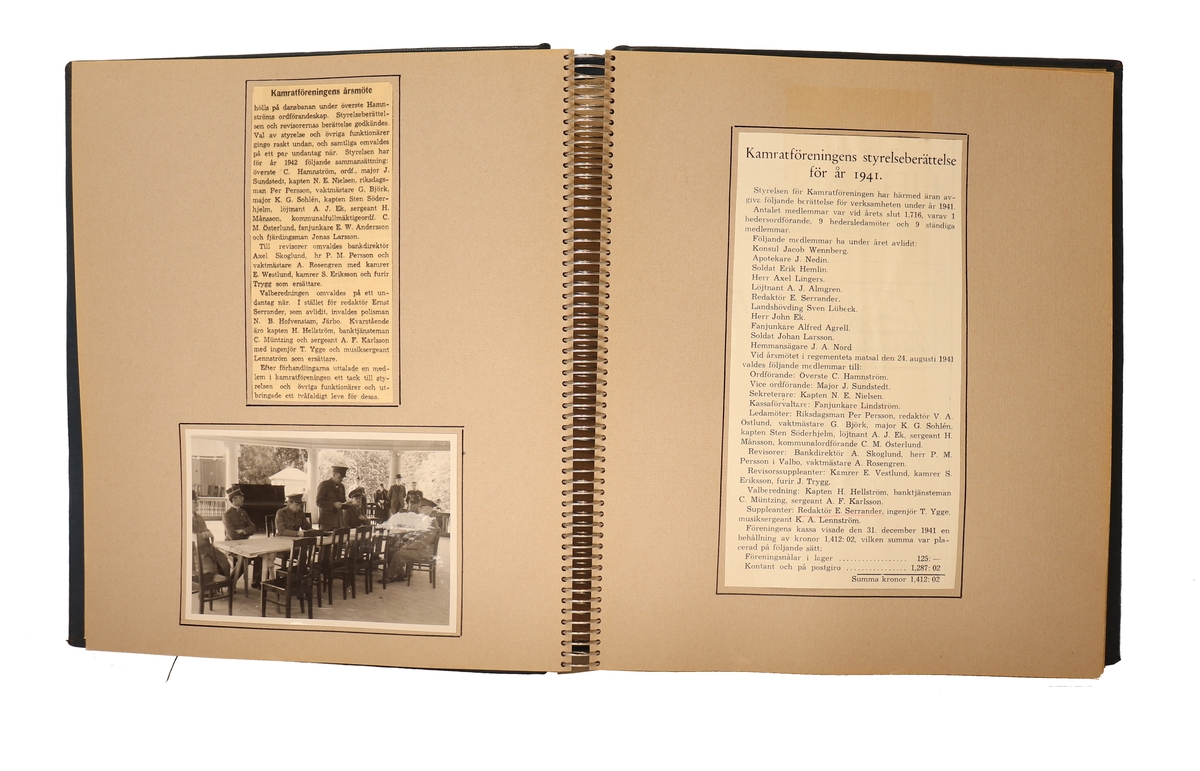 Kamratföreningens årsmöte
hölls på dansbanan under överste Hamn-
ströms ordförandeskap. Styrelseberättel-
sen och revisorernas berättelse godkändes.
Val av styrelse och övriga funktionärer
gingo raskt undan, och samtliga omvaldes
på ett par undantag när. Styrelsen har
för år 1942 följande sammansättning:
överste C. Hamnström, ordf., major J.
Sundstedt, kapten N. E. Nielsen, riksdags-
man Per Persson, vaktmästare G. Björk,
major K. G. Sohlén, kapten Sten Söder-
hjelm, löjtnant A. J. Ek, sergeant H.
Månsson, kommunalfullmäktigeordf. C.
M. Österlund, fanjunkare E. W. Andersson
och fjärdingsman Jonas Larsson.
Till revisorer omvaldes bankdirektör
Axel Skoglund, hr P. M. Persson och
vaktmästare A. Rosengren med kamrer
E. Westlund, kamrer S. Eriksson och furir
Trygg som ersättare.
Valberedningen omvaldes på ett un-
dantag när. I stället för redaktör Ernst
Serrander, som avlidit, invaldes polisman
N. B. Hofvenstam, Järbo. Kvarstående
äro kapten H. Hellström, banktjänsteman
C. Müntzing och sergeant A. F. Karlsson
med ingenjör T. Ygge och musiksergeant
Lennström som ersättare.
Efter förhandlingarna uttalade en med-
lem i kamratföreningen ett tack till sty-
relsen och övriga funktionärer och ut-
bringade ett tvåfaldigt leve för dessa.
Kamratföreningens styrelseberättelse
för år 1941.
Styrelsen för Kamratföreningen har härmed äran av-
giva följande berättelse för verksamheten under år 1941.
Antalet medlemmar var vid årets slut 1,716, varav 1
hedersordförande, 9 hedersledamöter och 9 ständiga
medlemmar.
Följande medlemmar ha under året avlidit:
Konsul Jacob Wennberg.
Apotekare J. Nedin.
Soldat Erik Hemlin.
Herr Axel Lingers.
Löjtnant A. J. Almgren.
Redaktör E. Serrander.
Landshövding Sven Lübeck.
Herr John Ek.
Fanjunkare Alfred Agrell.
Soldat Johan Larsson.
Hemmansägare J. A. Nord
Vid årsmötet i regementets matsal den 24. augusti 1941
valdes följande medlemmar till:
Ordförande: Överste C. Hamnström.
Vice ordförande: Major J. Sundstedt.
Sekreterare: Kapten N. E. Nielsen.
Kassaförvaltare: Fanjunkare Lindström.
Ledamöter: Riksdagsman Per Persson, redaktör V. A.
Östlund, vaktmästare G. Björk, major K. G. Sohlén,
kapten Sten Söderhjelm, löjtnant A. J. Ek, sergeant H.
Månsson, kommunalordförande C. M. Österlund.
Revisorer: Bankdirektör A. Skoglund, herr P. M.
Persson i Valbo, vaktmästare A. Rosengren.
Revisorssuppleanter: Kamrer E. Vestlund, kamrer S.
Eriksson, furir J. Trygg.
Valberedning: Kapten H. Hellström, banktjänsteman
C. Müntzing, sergeant A. F. Karlsson.
Suppleanter: Redaktör E. Serrander, ingenjör T. Ygge,
musiksergeant K. A. Lennström.
Föreningens kassa visade den 31. december 1941 en
behållning av kronor 1,412: 02, vilken summa var pla-
cerad på följande sätt:
Föreningsnålar i lager ................. 125: —
Kontant och på postgiro ............... 1,287: 02
Summa kronor 1,412: 02